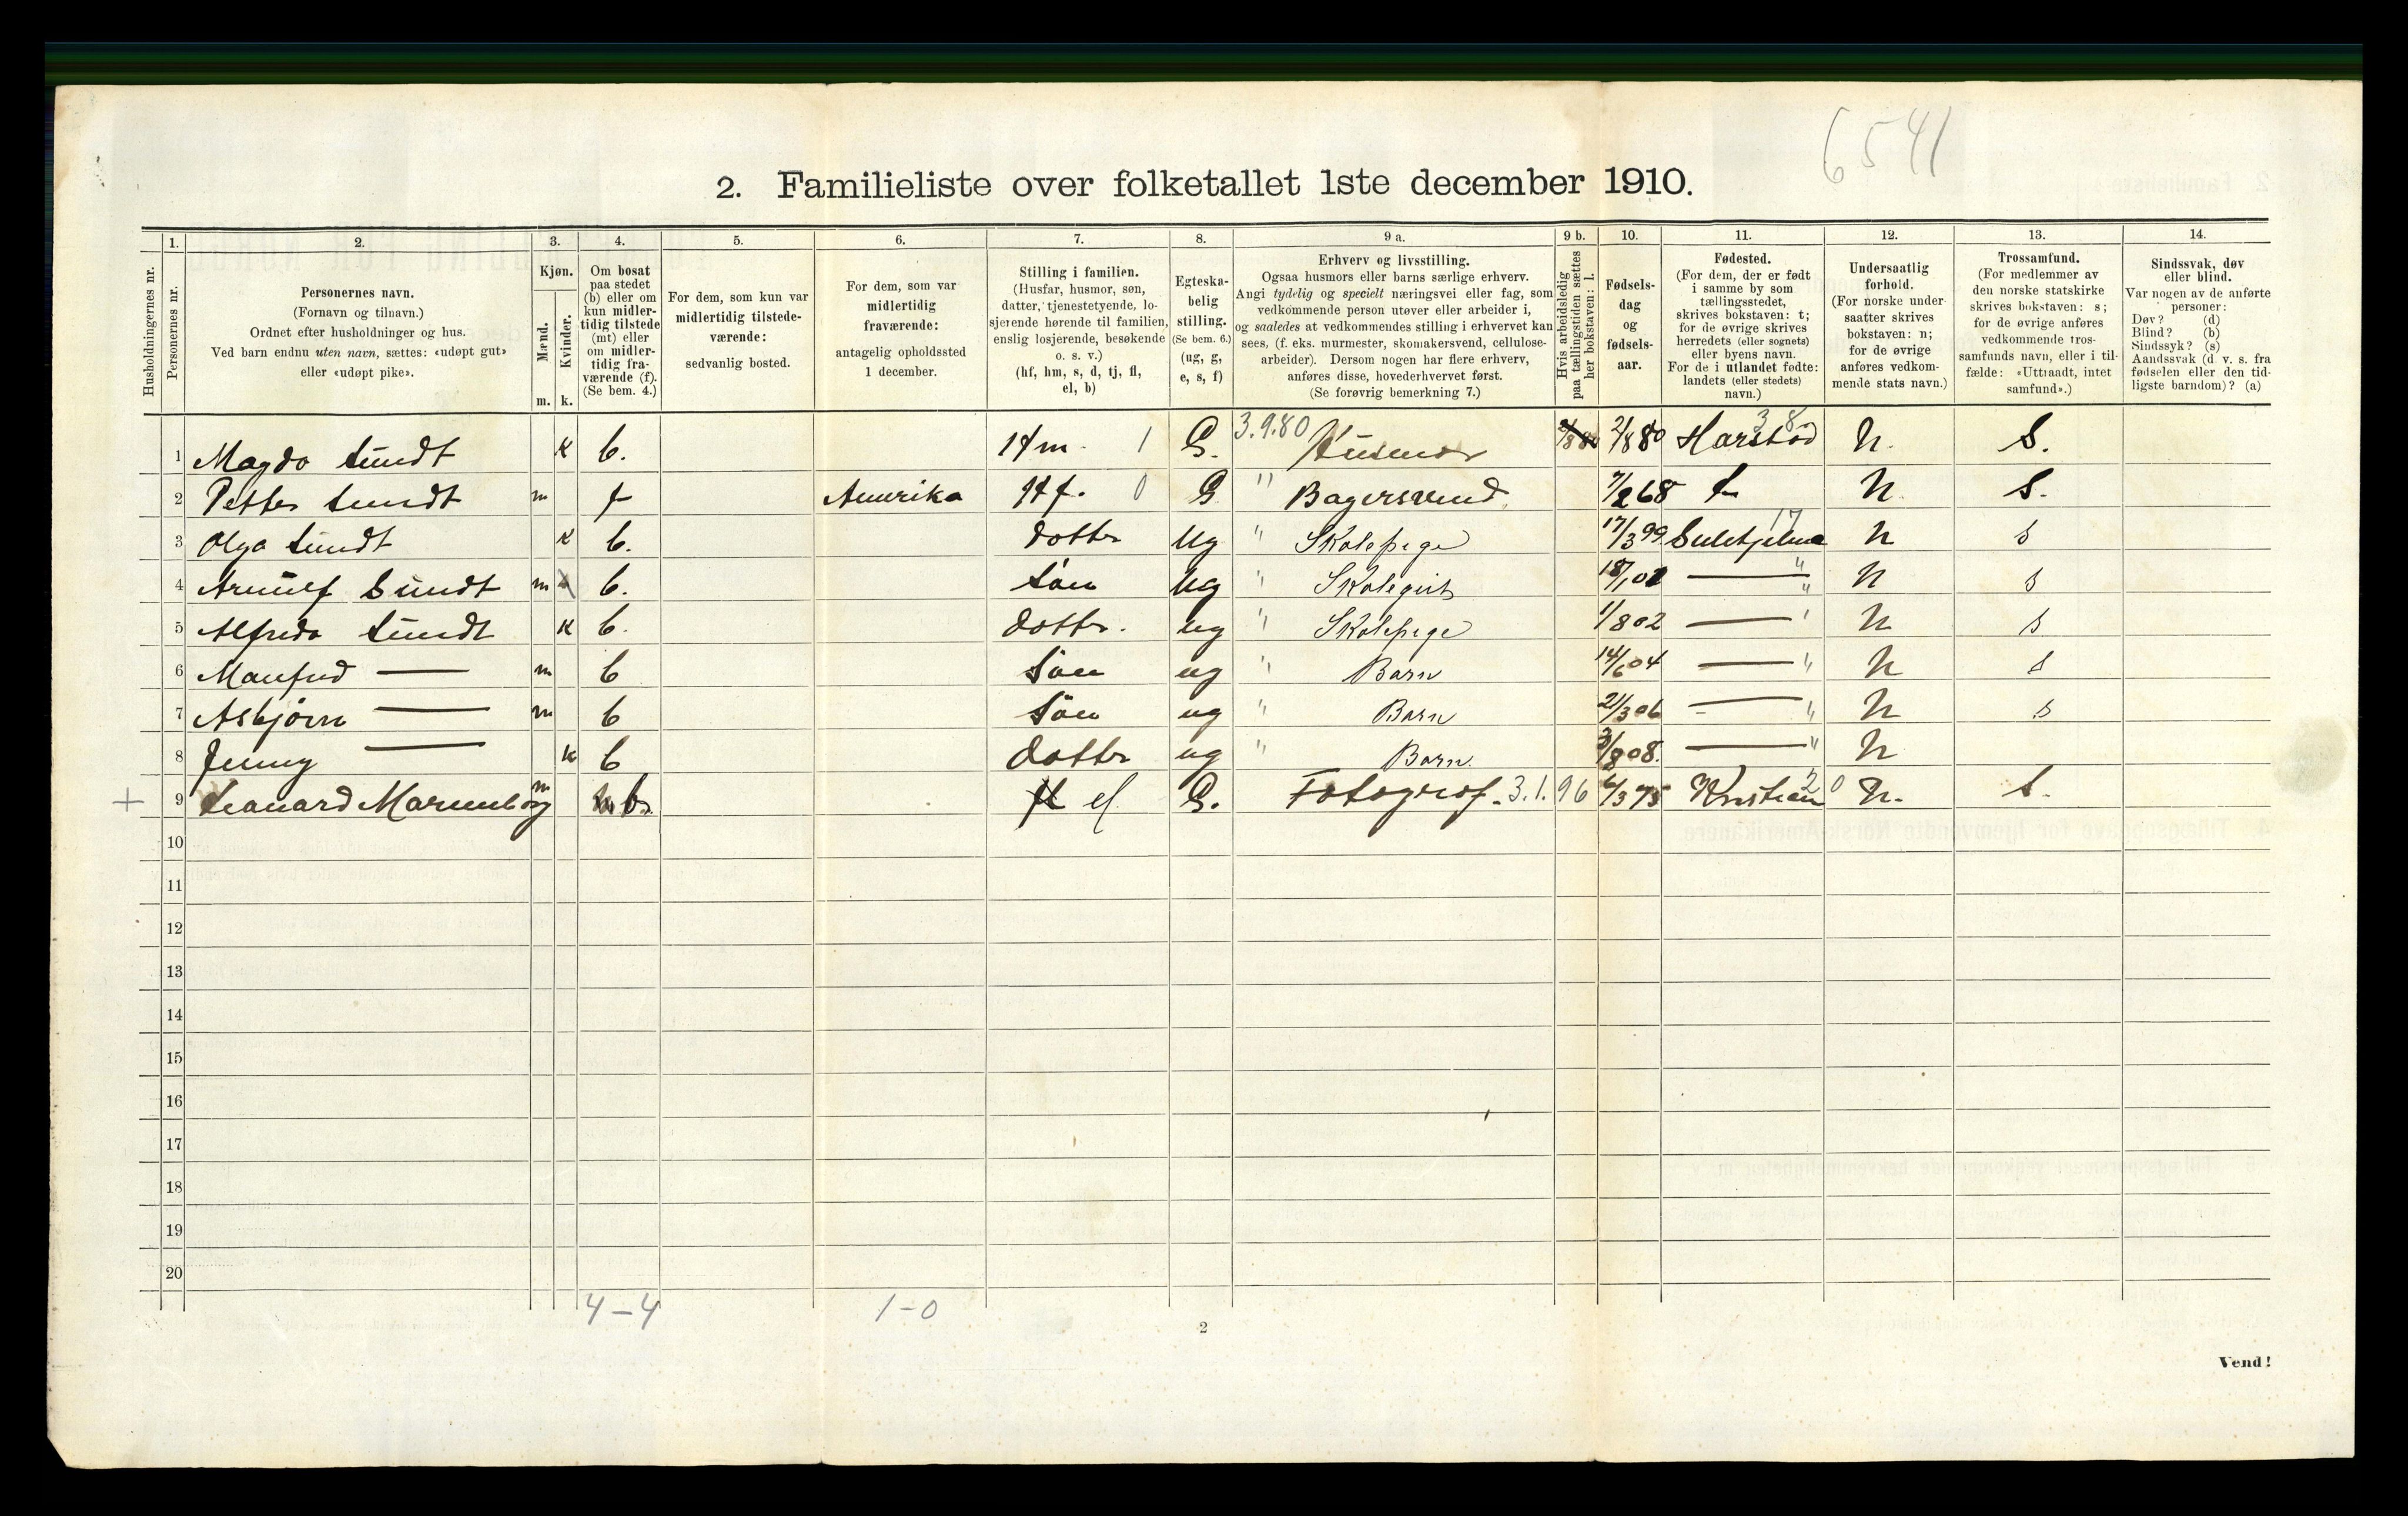 6541
2. Familieliste over folketallet 1ste december 1910.
Husholdningernes nr.
1. Personernes nr.
2. Personernes navn. (Fornavn og tilnavn.) Ordnet efter husholdninger og hus. Ved barn endnu uten navn, sættes: «udøpt gut» eller «udøpt pike».
3. Kjøn. Mænd. m. Kvinder. k.
4. Om bosat paa stedet (b) eller om kun midlertidig tilstede (mt) eller om midlertidig fraværende (f). (Se bem. 4.)
5. For dem, som kun var midlertidig tilstedeværende: sedvanlig bosted.
6. For dem, som var midlertidig fraværende: antagelig opholdssted 1 december.
7. Stilling i familien. (Husfar, husmor, søn, datter, tjenestetyende, losjerende hørende til familien, enslig losjerende, besøkende o. s. v.) (hf, hm, s, d, tj, fl, el, b)
8. Egteskabelig stilling. (Se bem. 6.) (ug, g, e, s, f)
9 a. Erhverv og livsstilling. Ogsaa husmors eller barns særlige erhverv. Angi tydelig og specielt næringsvei eller fag, som vedkommende person utøver eller arbeider i, og saaledes at vedkommendes stilling i erhvervet kan sees, (f. eks. murmester, skomakersvend, cellulosearbeider). Dersom nogen har flere erhverv, anføres disse, hovederhvervet først. (Se forøvrig bemerkning 7.)
9 b. Hvis arbeidsledig paa tællingstiden sættes her bokstaven: l.
10. Fødselsdag og fødselsaar.
11. Fødested. (For dem, der er født i samme by som tællingsstedet, skrives bokstaven: t; for de øvrige skrives herredets (eller sognets) eller byens navn. For de i utlandet fødte: landets (eller stedets) navn.)
12. Undersaatlig forhold. (For norske undersaatter skrives bokstaven: n; for de øvrige anføres vedkommende stats navn.)
13. Trossamfund. (For medlemmer av den norske statskirke skrives bokstaven: s; for de øvrige anføres vedkommende trossamfunds navn, eller i tilfælde: «Uttraadt, intet samfund».)
14. Sindssvak, døv eller blind. Var nogen av de anførte personer: Døv? (d) Blind? (b) Sindssyk? (s) Aandssvak (d. v. s. fra fødselen eller den tidligste barndom)? (a)
1 Magda Sundt k b. Hm. 1 G. 3.9.80 Husmor 2/8 80 Harstad 38 N. S.
2 Petter Sundt m f Amerika Hf. 0 G " Bagersvend 7/2 68 N S.
3 Olga Sundt k b. dotter ug " Skolepige 17/3 99 Sulitjelma 17 N S
4 Arnulf Sundt m b. Søn ug " Skolegut — " N S
5 Alfreda Sundt k b. dotter. ug " Skolepige 1/8 02 — " N S
6 Manfred — m b Søn ug " Barn 14/6 04 — " N S
7 Asbjørn — m b Søn ug " Barn 21/3 06 — " N S
8 Jenny — k b dotter ug " Barn 3/8 08. — " N
+ 9 Leonard m b. el G. Fotograf. 3.1.96 6/3 75 Kristian 20 N. S.
10
11
12
13
14
15
16
17
18
19
20
4-4 1-0
2
Vend!